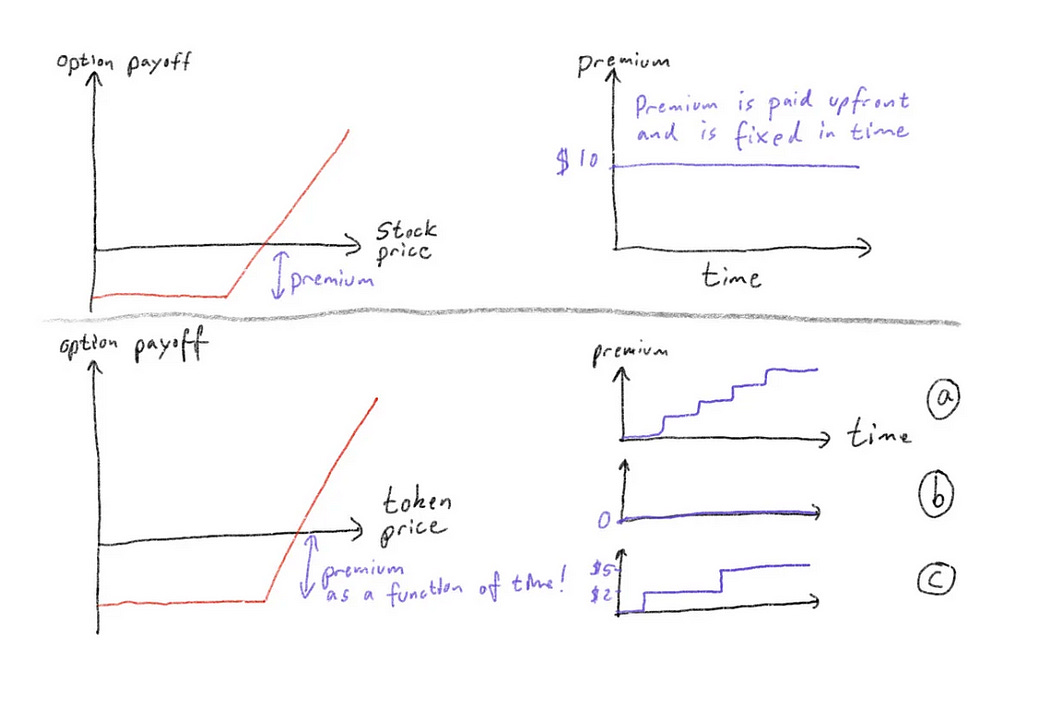 option payoff
Stock
price
premium
premium
Premium is paid upfront
and is fixed in time
$10
time
option payoff
token
price
premium
as a function of time!
premium
time
a
0
b
$5
$2
c